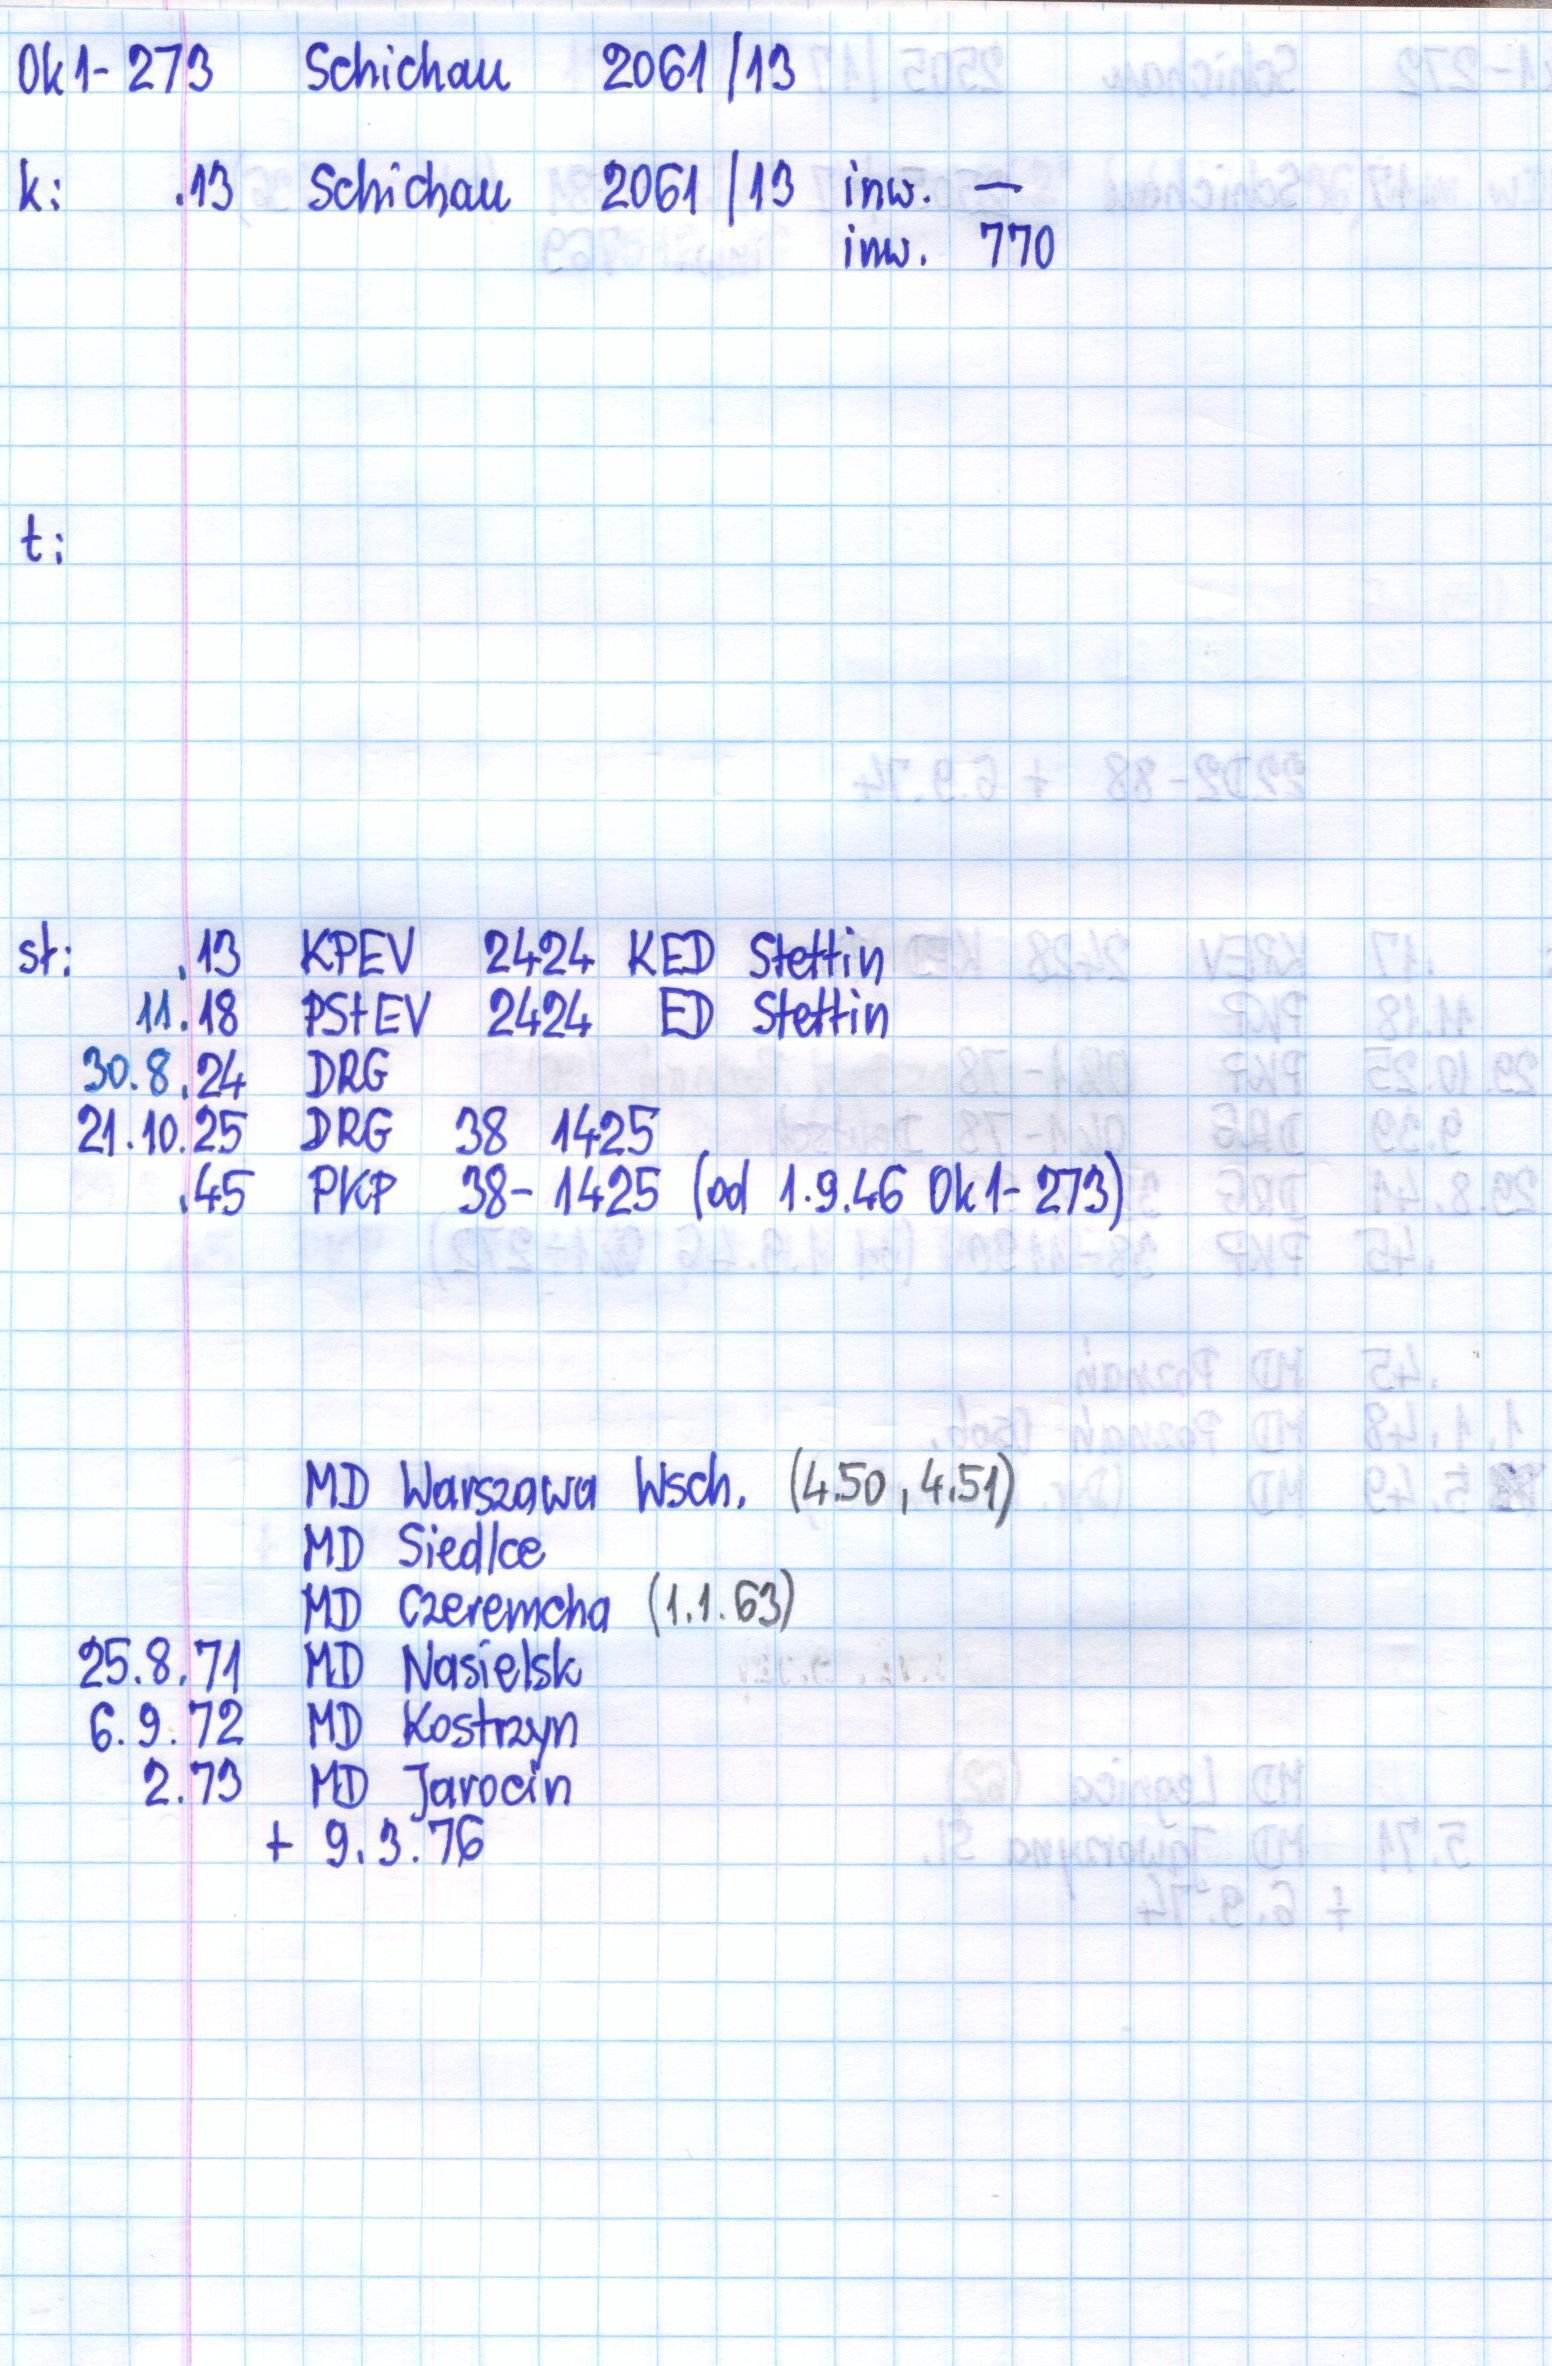 Ok1-273 Schichau 2061/13
k: .13 Schichau 2061/13 inw. —
inw. 770
t:
st: .13 KPEV 2424 KED Stettin
11.18 PStEV 2424 ED Stettin
30.8.24 DRG
21.10.25 DRG 38 1425
.45 PKP 38-1425 (od 1.9.46 Ok1-273)
MD Warszawa Wsch. (4.50, 4.51)
MD Siedlce
MD Czeremcha (1.1.63)
25.8.71 MD Nasielsk
6.9.72 MD Kostrzyn
2.73 MD Jarocin
+ 9.3.76